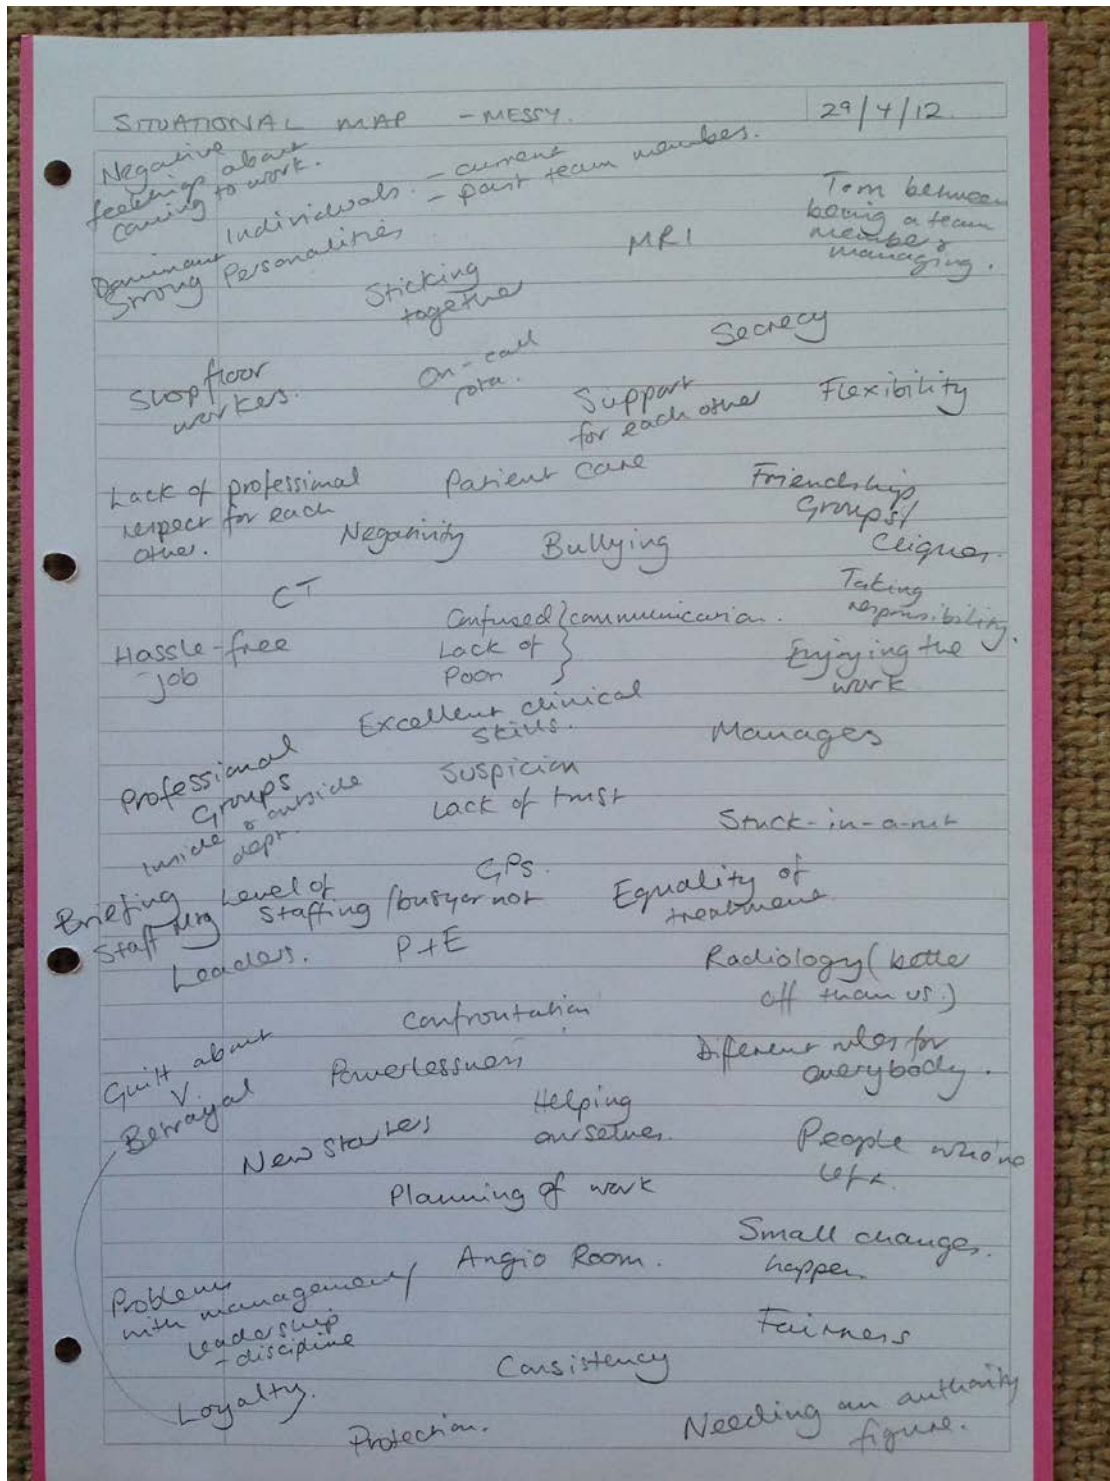 SITUATIONAL MAP - MESSY.
29/4/12.
Negative
feelings about
coming to work.
Individuals. - current
- past team member.
Dominant
Strong Personalities
MRI
Torn between
being a team
member &
managing.
Sticking
together
Secrecy
Shopfloor
workers.
On-call
rota.
Support
for each other
Flexibility
Lack of professional
respect for each
other.
Patient care
Friendship
Groups/
Cliques.
Negativity
Bullying
CT
Taking
responsibility.
Confused } communication.
Lack of
Poor
Hassle-free
job
Enjoying the
work
Excellent clinical
skills.
Manages
Professional
Groups
inside & outside
dept.
Suspicion
Lack of trust
Stuck-in-a-rut
GPs.
Briefing
Staff Mtg
Level of
Staffing / busy or not
Equality of
treatment.
Leaders.
P+E
Radiology (better
off than us.)
Confrontation
Guilt about
V.
Betrayal
Powerlessness
Different rules for
everybody.
New Starters
Helping
ourselves.
People who've
left.
Planning of work
Angio Room.
Small changes.
happen
Problems
with management/
leadership
- discipline
Fairness
Consistency
Loyalty.
Protection.
Needing an authority
figure.